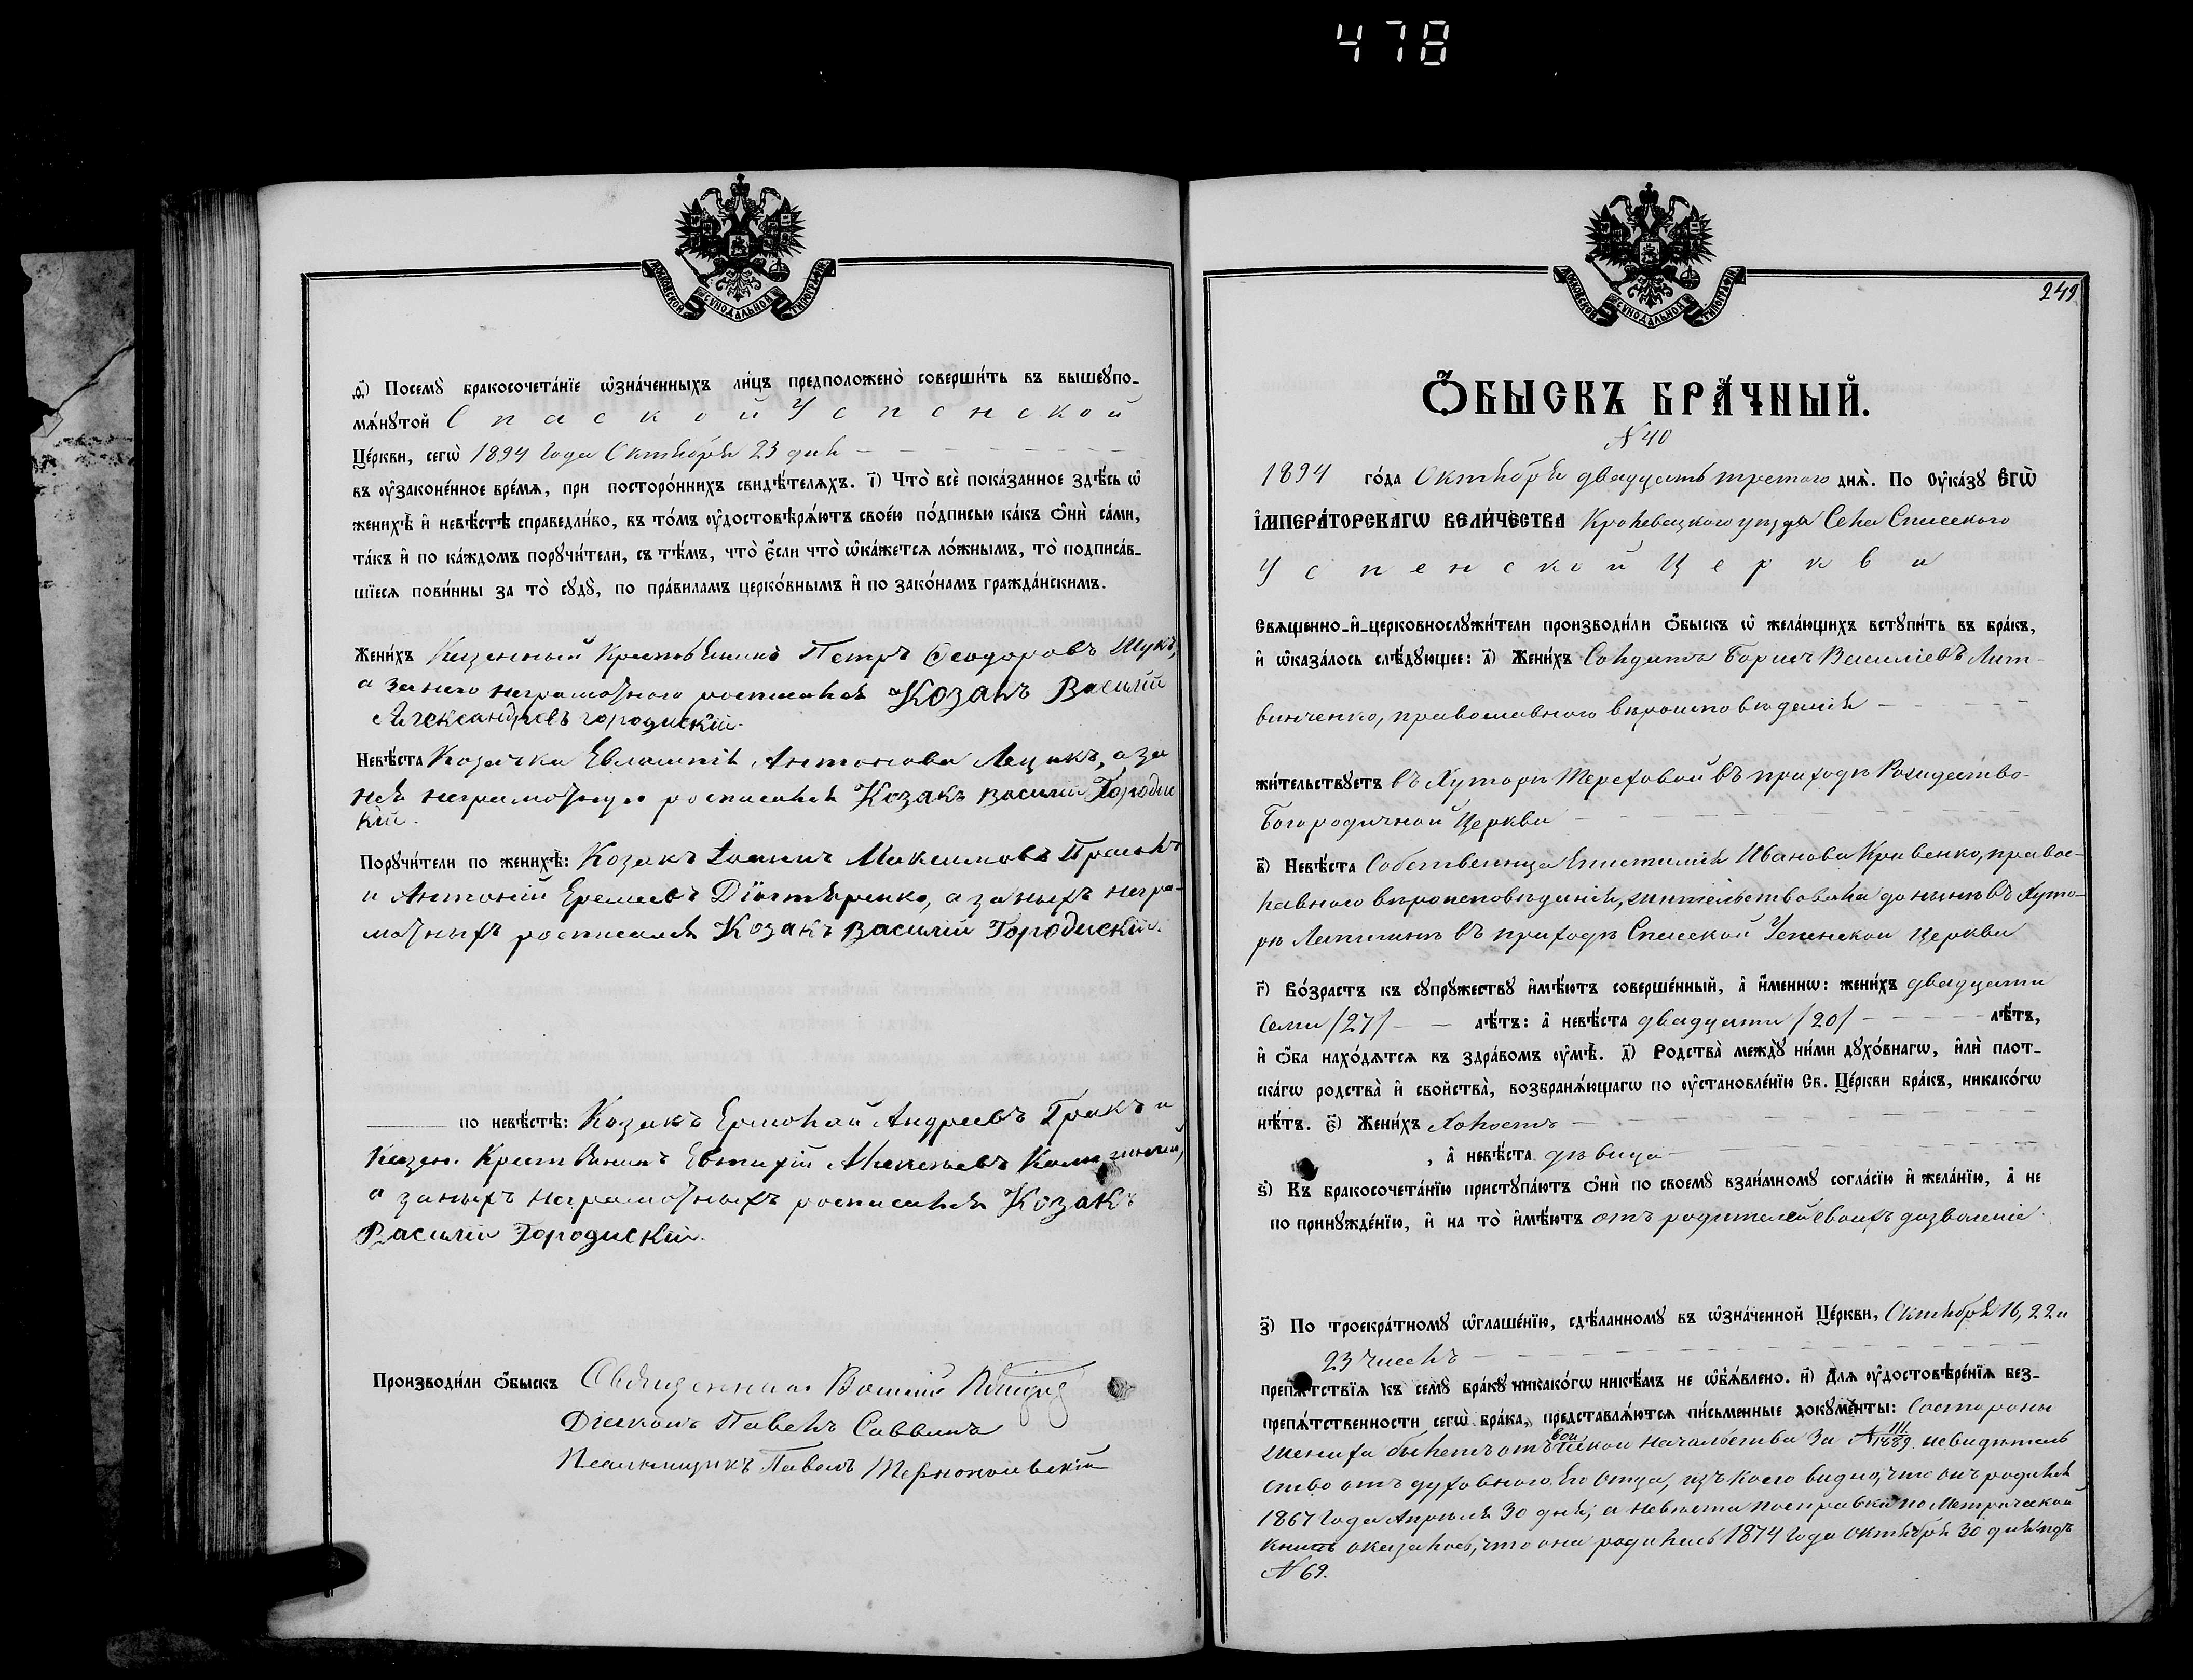 478
МОСКОВСКОЙ СѴНОДАЛЬНОЙ ТИПОГРАФІИ
д҃) Посемꙋ̀ бракосочета́нїе ѡ҆зна́ченныхъ ли́цъ предположено̀ соверши́ть въ вышеꙋпо-
мѧ́нꙋтой Спаской Успенской
Це́ркви, сегѡ̀ 1894 года Октября 23 дня
въ ᲂу҆законе́нное вре́мѧ, при посторо́ннихъ свидѣ́телѧхъ. і҃) Что̀ всѐ пока́занное здѣ́сь ѡ҆
женихѣ̀ и҆ невѣ́стѣ справедли́во, въ то́мъ ᲂу҆достовѣрѧ́ютъ свое́ю по́дписью ка́къ ѻ҆нѝ са́ми,
та́къ и҆ по ка́ждомъ порꙋчи́тели, съ тѣ́мъ, что̀ є҆́сли что̀ ѡ҆ка́жетсѧ ло́жнымъ, то̀ подписа́в-
шїесѧ пови́нны за то̀ сꙋдꙋ̀, по пра́виламъ церко́внымъ и҆ по зако́намъ гражда́нскимъ.
Жени́хъ Казенный Крестьянинъ Петръ Ѳеодоровъ Шукъ,
а за него неграмотного росписался Козакъ Василій
Александровъ Городискій.
Невѣ́ста Козачка Евлампія Антонова Лацукъ, а за
нея неграмотную росписался Козакъ Василій Городис
кій.
Порꙋчи́тели по женихѣ̀: Козакъ Іоаннъ Максимовъ
и Антоній Еремеевъ Дігтяренко, а за ныхъ негра-
мотныхъ росписался Козакъ Василій Городискій.
по невѣ́стѣ: Козакъ Ермолай Андреевъ Гракъ и
Казен. Крестьянинъ Евтихій
а за ныхъ неграмотныхъ росписался Козакъ
Василій Городискій.
Производи́ли ѻ҆́быскъ Священникъ
Діаконъ Павелъ Саввинъ
Псаломщикъ Павелъ
МОСКОВСКОЙ СѴНОДАЛЬНОЙ ТИПОГРАФІИ
249
Ѻ҆́БЫСКЪ БРА́ЧНЫЙ.
N 40
1894 го́да Октября двадцать третого днѧ̀. По ᲂу҆ка́зꙋ Є҆гѡ̀
І҆МПЕРА́ТОРСКАГѠ ВЕЛИ́ЧЕСТВА Кролевецкого уѣзда Села Спасского
Успенской Церкви
Сващенно-и҆-церковнослꙋжи́тели производи́ли ѻ҆́быскъ ѡ҆ жела́ющихъ встꙋпи́ть въ бра́къ,
и҆ ѡ҆каза́лось слѣ́дꙋющее: а҃) Жени́хъ Солдатъ Борисъ Василіевъ Лит-
винченко, православного вѣроисповѣданія
жи́тельствꙋетъ въ Хуторѣ Тереховой въ приходѣ Рождество-
Богородичной Церкви
в҃) Невѣ́ста Собственница Епистимія Иванова Кривенко, правос-
лавного вѣроисповѣданія, жительствовала до нынѣ въ Хуто-
рѣ въ приходѣ Спасской Успенской Церкви
г҃) Во́зрастъ къ сꙋпрꙋ́жествꙋ и҆мѣ́ютъ соверше́нный, а҆̀ и҆́меннѡ: жени́хъ двадцати
семи /27/ лѣ́тъ: а҆̀ невѣ́ста двадцати /20/ лѣ́тъ,
и҆ ѻ҆́ба нахо́дѧтсѧ въ здра́вомъ ᲂу҆мѣ̀. д҃) Родства̀ междꙋ̀ ни́ми дꙋхо́внагѡ, и҆лѝ плот-
ска́гѡ родства̀ и҆ свойства̀, возбранѧ́ющагѡ по ᲂу҆становле́нїю Св. Це́ркви бра́къ, никако́гѡ
нѣ́тъ. є҃) Жени́хъ Холостъ
, а҆̀ невѣ́ста дѣвица
ѕ҃) Къ бракосочета́нїю пристꙋпа́ютъ ѻ҆нѝ по своемꙋ̀ взаи́мномꙋ согла́сїю и҆ жела́нїю, а҆̀ не
по принꙋжде́нїю, и҆ на то̀ и҆мѣ́ютъ отъ родителей своихъ дозволеніе
з҃) По троекра́тномꙋ ѡ҆глаше́нїю, сдѣ́ланномꙋ въ ѡ҆зна́ченной Це́ркви, Октября 16, 22 и
23 числъ
препѧ́тствїѧ къ семꙋ̀ бра́кꙋ никако́гѡ никѣ́мъ не ѡ҆бъѧ́влено. и҃) Длѧ ᲂу҆достовѣре́нїѧ без-
препѧ́тственности сегѡ̀ бра́ка, представлѧ́ютсѧ пи́сьменные докꙋме́нты: Состороны
жениха билетъ отъ воинскои начальства За N III/1889 и свидѣтель
ство отъ духовного Его Отца, изъ коего видно, что онъ родился
1867 года Апрѣля 30 дня; а невѣста по справки по Метрической
книгѣ оказалось, что она родилась 1874 года Октября 30 дня подъ
N 69.